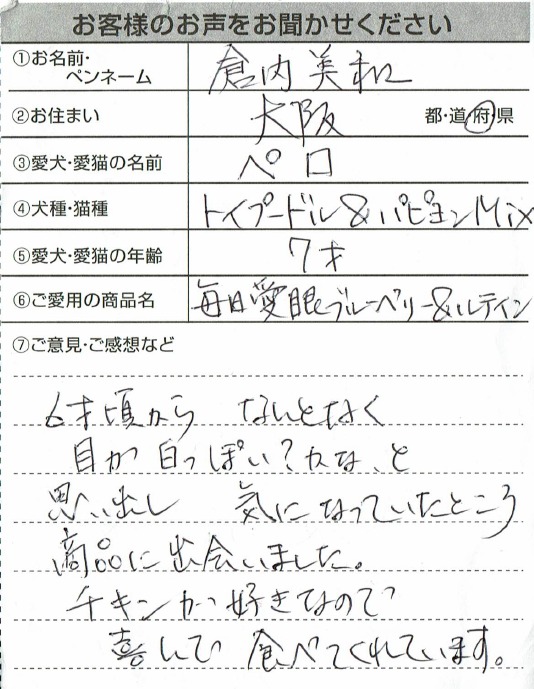 お客様のお声をお聞かせください
①お名前・ペンネーム 倉内美和
②お住まい 大阪 都・道・府・県
③愛犬・愛猫の名前 ペロ
④犬種・猫種 トイプードル&パピヨンMix
⑤愛犬・愛猫の年齢 7才
⑥ご愛用の商品名 毎日愛眼ブルーベリー&ルテイン
⑦ご意見・ご感想など
6才頃から なんとなく
目が白っぽい?かな、と
思い出し 気になっていたところ
商品に出会いました。
チキンが好きなので
喜んで食べてくれています。